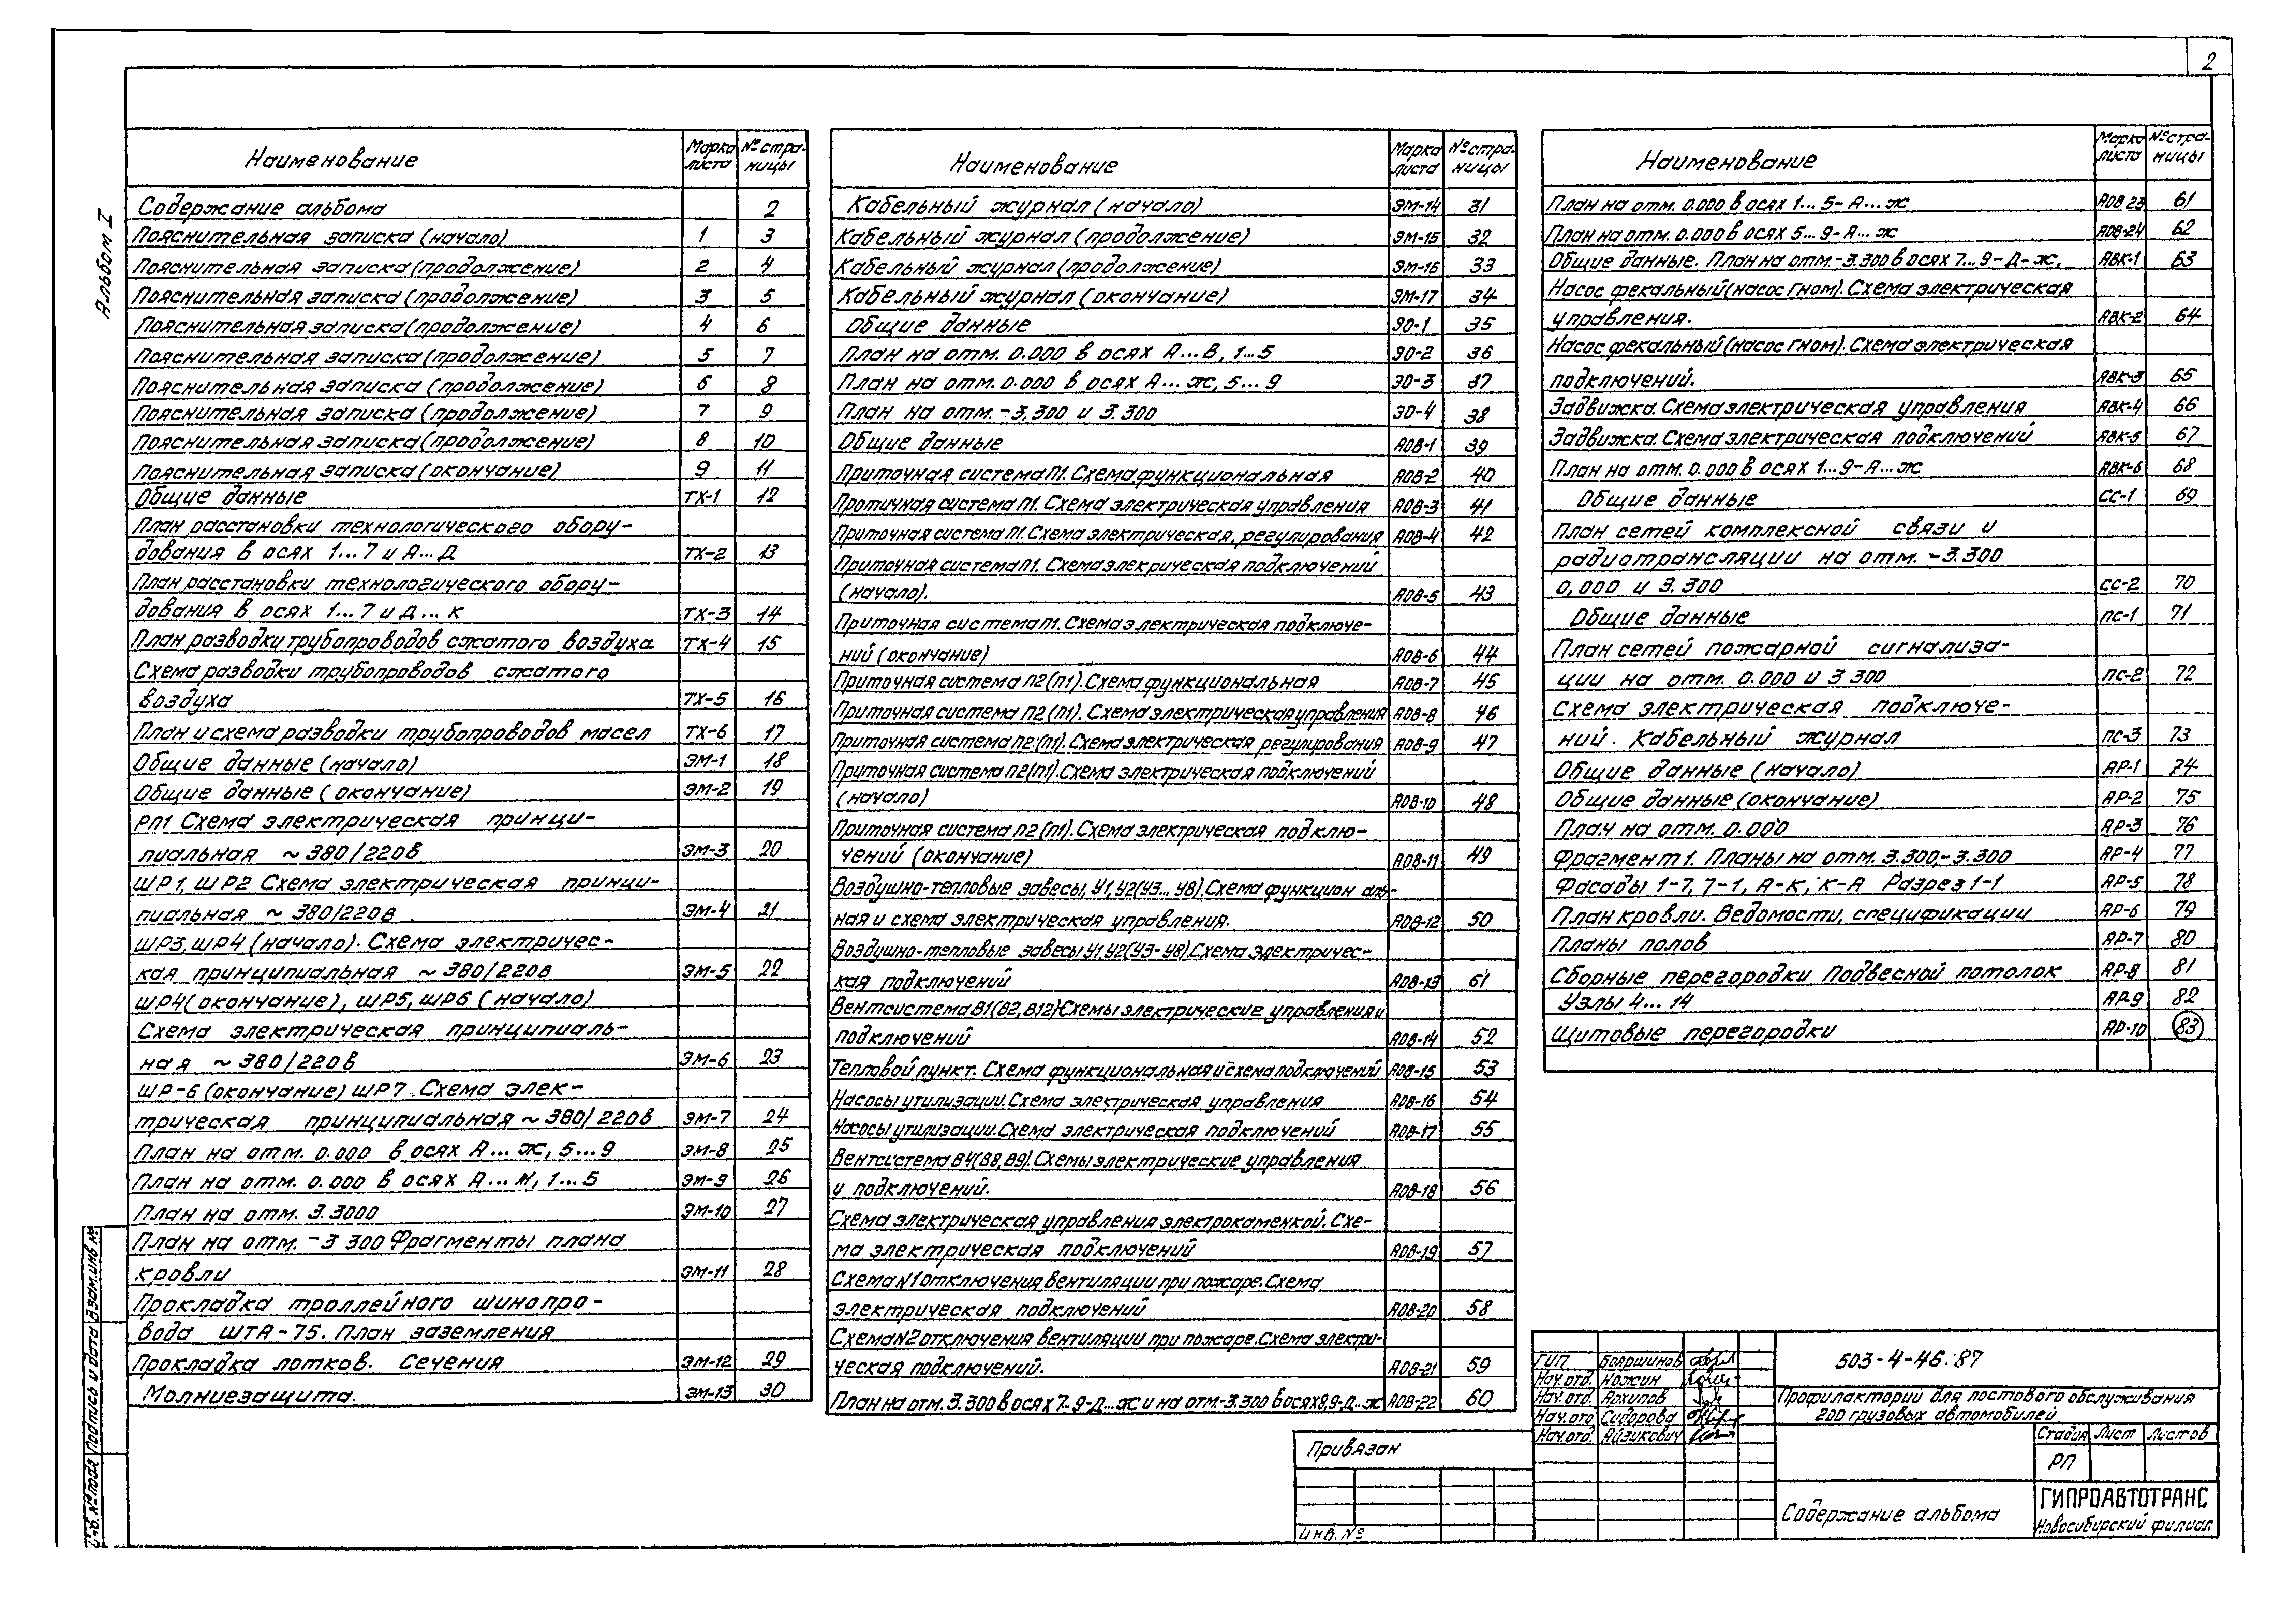 2
Альбом I
Наименование Марка листа № страницы
Содержание альбома 2
Пояснительная записка (начало) 1 3
Пояснительная записка (продолжение) 2 4
Пояснительная записка (продолжение) 3 5
Пояснительная записка (продолжение) 4 6
Пояснительная записка (продолжение) 5 7
Пояснительная записка (продолжение) 6 8
Пояснительная записка (продолжение) 7 9
Пояснительная записка (продолжение) 8 10
Пояснительная записка (окончание) 9 11
Общие данные ТХ-1 12
План расстановки технологического обору-
дования в осях 1...7 и А...Д ТХ-2 13
План расстановки технологического обору-
дования в осях 1...7 и Д...К ТХ-3 14
План разводки трубопроводов сжатого воздуха ТХ-4 15
Схема разводки трубопроводов сжатого
воздуха ТХ-5 16
План и схема разводки трубопроводов масел ТХ-6 17
Общие данные (начало) ЭМ-1 18
Общие данные (окончание) ЭМ-2 19
РП1 Схема электрическая принци-
пиальная ~380/220в ЭМ-3 20
ШР1, ШР2 Схема электрическая принци-
пиальная ~380/220в ЭМ-4 21
ШР3, ШР4 (начало). Схема электричес-
кая принципиальная ~380/220в ЭМ-5 22
ШР4 (окончание), ШР5, ШР6 (начало)
Схема электрическая принципиаль-
ная ~380/220в ЭМ-6 23
ШР-6 (окончание) ШР7. Схема элек-
трическая принципиальная ~380/220в ЭМ-7 24
План на отм. 0.000 в осях А...Ж, 5...9 ЭМ-8 25
План на отм. 0.000 в осях А...И, 1...5 ЭМ-9 26
План на отм. 3.3000 ЭМ-10 27
План на отм. -3 300 Фрагменты плана
кровли ЭМ-11 28
Прокладка троллейного шинопро-
вода ШТА-75. План заземления
Прокладка лотков. Сечения ЭМ-12 29
Молниезащита. ЭМ-13 30
Наименование Марка листа № страницы
Кабельный журнал (начало) ЭМ-14 31
Кабельный журнал (продолжение) ЭМ-15 32
Кабельный журнал (продолжение) ЭМ-16 33
Кабельный журнал (окончание) ЭМ-17 34
Общие данные ЭО-1 35
План на отм. 0.000 в осях А...В, 1...5 ЭО-2 36
План на отм. 0.000 в осях А...Ж, 5...9 ЭО-3 37
План на отм. -3,300 и 3.300 ЭО-4 38
Общие данные АОВ-1 39
Приточная система П1. Схема функциональная АОВ-2 40
Проточная система П1. Схема электрическая управления АОВ-3 41
Приточная система П1. Схема электрическая, регулирования АОВ-4 42
Приточная система П1. Схема элекрическая подключений
(начало). АОВ-5 43
Приточная система П1. Схема электрическая подключе-
ний (окончание) АОВ-6 44
Приточная система П2(П1). Схема функциональная АОВ-7 45
Приточная система П2(П1). Схема электрическая управления АОВ-8 46
Приточная система П2(П1). Схема электрическая регулирования АОВ-9 47
Приточная система П2(П1). Схема электрическая подключений
(начало) АОВ-10 48
Приточная система П2(П1). Схема электрическая подклю-
чений (окончание) АОВ-11 49
Воздушно-тепловые завесы, У1, У2(У3...У8). Схема функциональ-
ная и схема электрическая управления. АОВ-12 50
Воздушно-тепловые завесы У1, У2(У3-У8). Схема электричес-
кая подключений АОВ-13 61
Вентсистема В1(В2, В12) Схемы электрические управления и
подключений АОВ-14 52
Тепловой пункт. Схема функциональная и схема подключений АОВ-15 53
Насосы утилизации. Схема электрическая управления АОВ-16 54
Насосы утилизации. Схема электрическая подключений АОВ-17 55
Вентсистема В4(В8, В9). Схемы электрические управления
и подключений. АОВ-18 56
Схема электрическая управления электрокаменкой. Схе-
ма электрическая подключений АОВ-19 57
Схема N1 отключения вентиляции при пожаре. Схема
электрическая подключений АОВ-20 58
Схема N2 отключения вентиляции при пожаре. Схема электри-
ческая подключений. АОВ-21 59
План на отм. 3.300 в осях 7-9-Д...Ж и на отм. -3.300 в осях 8,9-Д...Ж АОВ-22 60
Наименование Марка листа № страницы
План на отм. 0.000 в осях 1...5-А...Ж АОВ 23 61
План на отм. 0.000 в осях 5...9-А...Ж АОВ-24 62
Общие данные. План на отм. -3.300 в осях 7...9-Д-Ж, АВК-1 63
Насос фекальный (насос Гном). Схема электрическая
управления. АВК-2 64
Насос фекальный (насос Гном). Схема электрическая
подключений. АВК-3 65
Задвижка. Схема электрическая управления АВК-4 66
Задвижка. Схема электрическая подключений АВК-5 67
План на отм. 0.000 в осях 1...9-А...Ж АВК-6 68
Общие данные СС-1 69
План сетей комплексной связи и
радиотрансляции на отм. -3.300
0,000 и 3.300 СС-2 70
Общие данные ПС-1 71
План сетей пожарной сигнализа-
ции на отм. 0.000 и 3 300 ПС-2 72
Схема электрическая подключе-
ний. Кабельный журнал ПС-3 73
Общие данные (начало) АР-1 74
Общие данные (окончание) АР-2 75
План на отм. 0.000 АР-3 76
Фрагмент 1. Планы на отм. 3.300, -3.300 АР-4 77
Фасады 1-7, 7-1, А-К, К-А Разрез 1-1 АР-5 78
План кровли. Ведомости, спецификации АР-6 79
Планы полов АР-7 80
Сборные перегородки Подвесной потолок АР-8 81
Узлы 4...14 АР-9 82
Щитовые перегородки АР-10 83
Взам.инв №
Подпись и дата
Инв. № подл
Привязан
Инв. №
ГИП Бояршинов
Нач.отд. Ножин
Нач.отд. Архипов
Нач.отд Сидорова
Нач.отд. Айзикович
503-4-46.87
Профилакторий для постового обслуживания
200 грузовых автомобилей
Стадия Лист Листов
РП
Содержание альбома
ГИПРОАВТОТРАНС
Новосибирский филиал